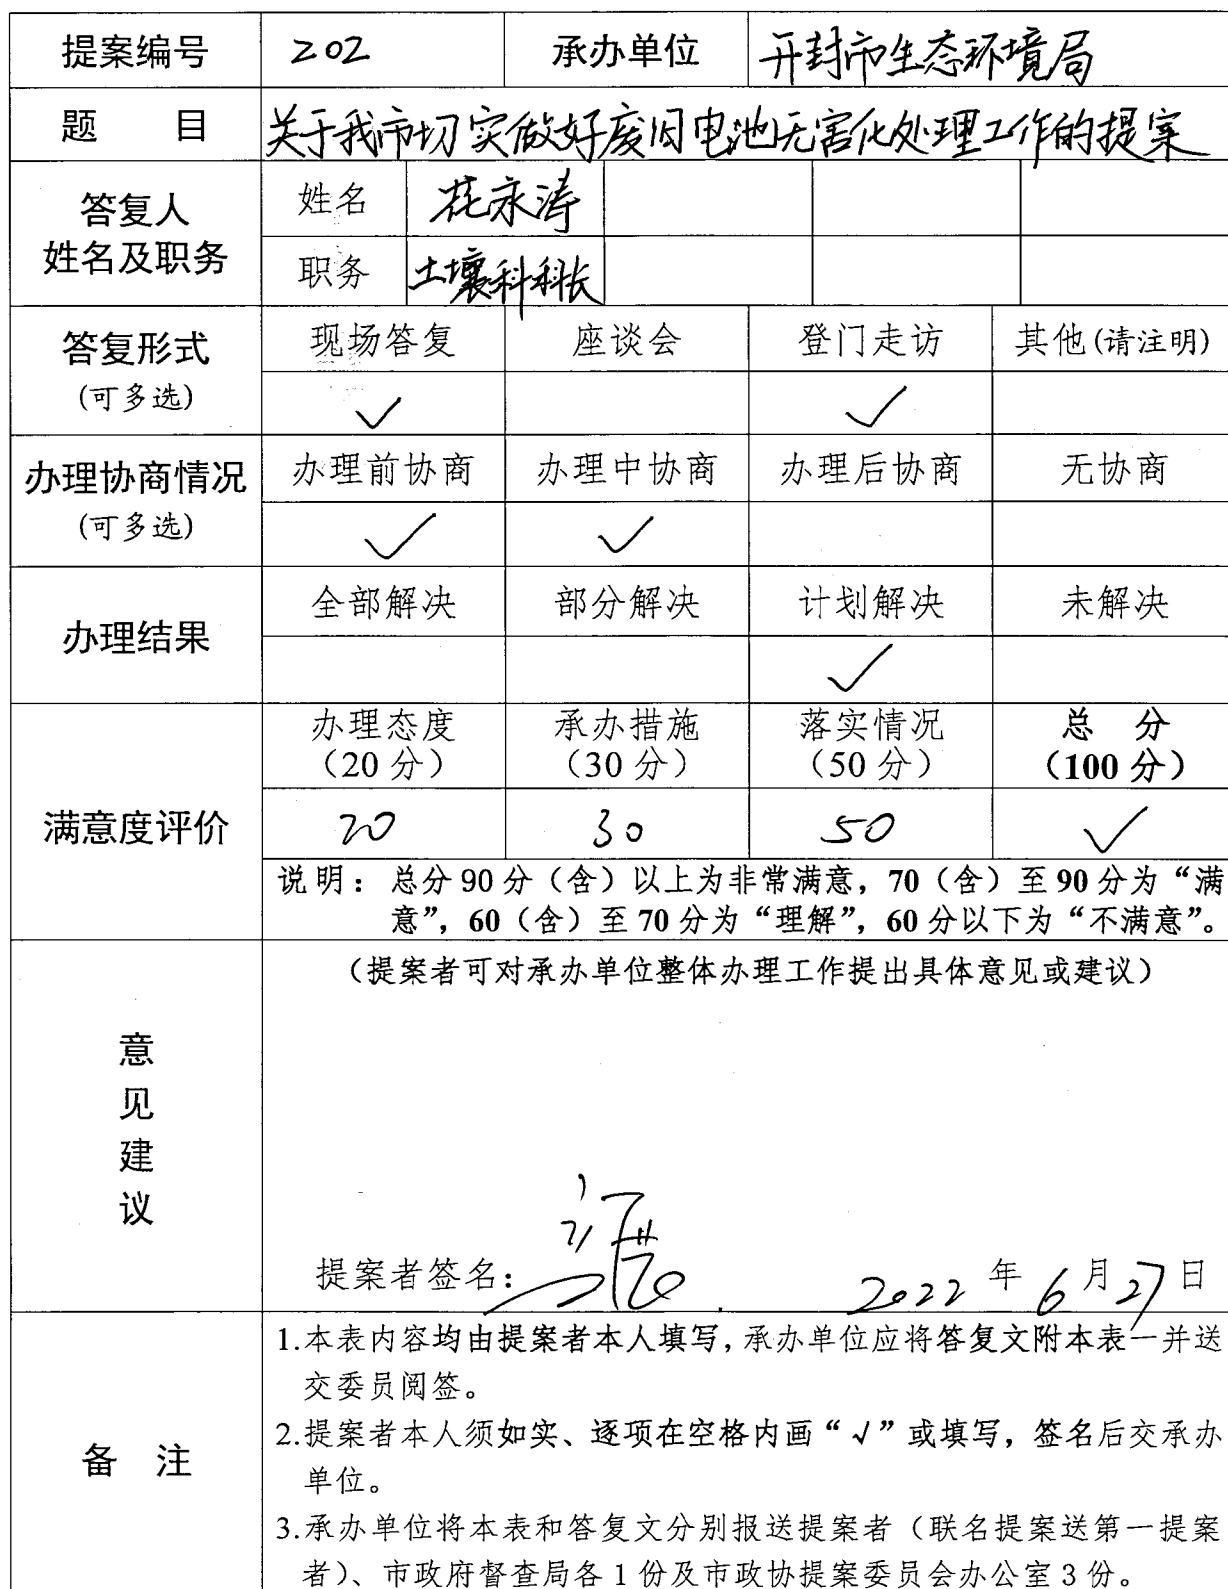 提案编号 202 承办单位 开封市生态环境局
题 目 关于我市切实做好废旧电池无害化处理工作的提案
答复人
姓名及职务
姓名 花永涛
职务 土壤科科长
答复形式
(可多选)
现场答复 座谈会 登门走访 其他(请注明)
✓ ✓
办理协商情况
(可多选)
办理前协商 办理中协商 办理后协商 无协商
✓ ✓
办理结果
全部解决 部分解决 计划解决 未解决
✓
满意度评价
办理态度 承办措施 落实情况 总 分
(20分) (30分) (50分) (100分)
20 30 50 ✓
说明：总分90分（含）以上为非常满意，70（含）至90分为“满
意”，60（含）至70分为“理解”，60分以下为“不满意”。
意见建议
（提案者可对承办单位整体办理工作提出具体意见或建议）
提案者签名： 2022年6月27日
备 注
1.本表内容均由提案者本人填写，承办单位应将答复文附本表一并送
交委员阅签。
2.提案者本人须如实、逐项在空格内画“√”或填写，签名后交承办
单位。
3.承办单位将本表和答复文分别报送提案者（联名提案送第一提案
者）、市政府督查局各1份及市政协提案委员会办公室3份。